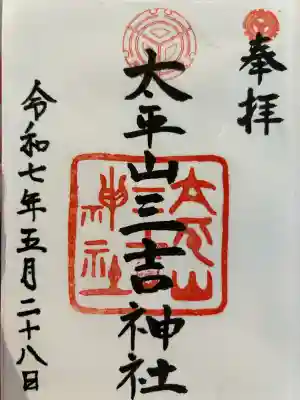 奉拝
太平山三吉神社
令和七年五月二十八日
太平山
三吉
神社